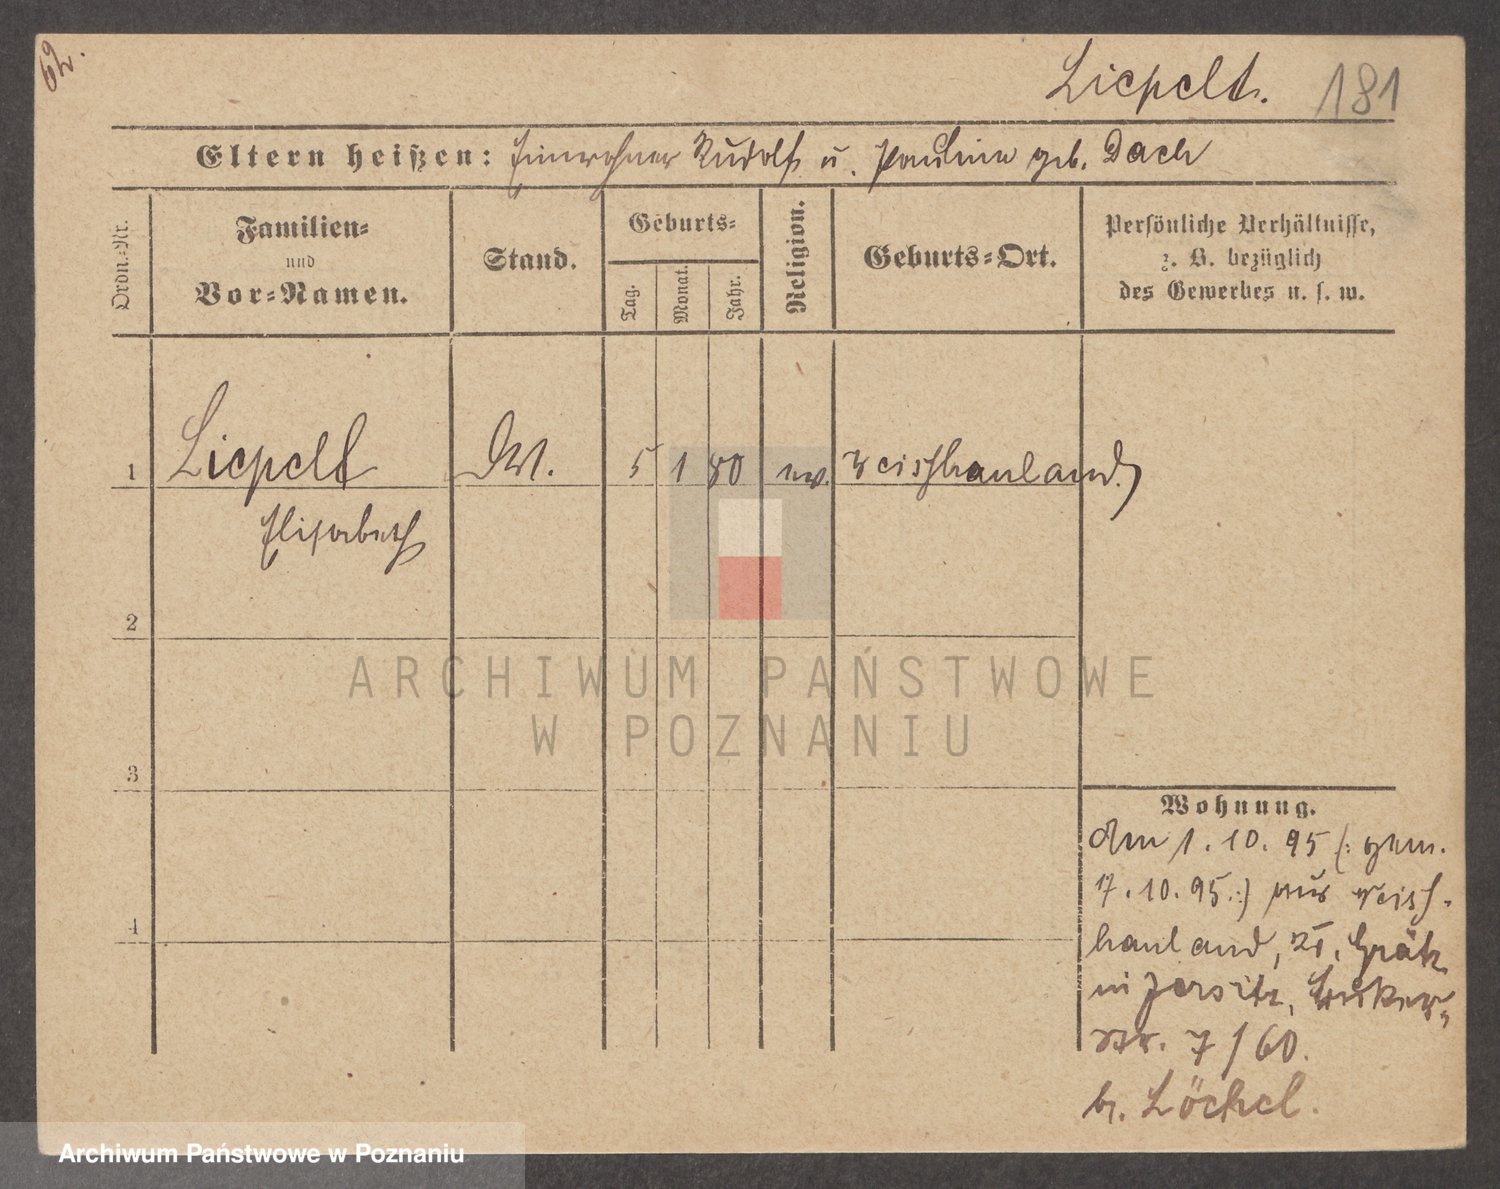 62.
Liepelt.
181
Eltern heißen: Einwohner Rudolf u. Pauline geb. Dach
Ordn.-Nr.
Familien-
und
Vor-Namen.
Stand.
Geburts-
Tag.
Monat.
Jahr.
Religion.
Geburts-Ort.
Persönliche Verhältnisse,
z. B. bezüglich
des Gewerbes u. s. w.
1 Liepelt 5 1 80
Elisabeth
2
ARCHIWUM PAŃSTWOWE
W POZNANIU
3
Wohnung.
Am 1. 10. 95 (: gem.
17. 10. 95 :) aus
hauland, Kr. Grätz
in Jersitz,
str. 7/60.
b. Löchel.
4
Archiwum Państwowe w Poznaniu